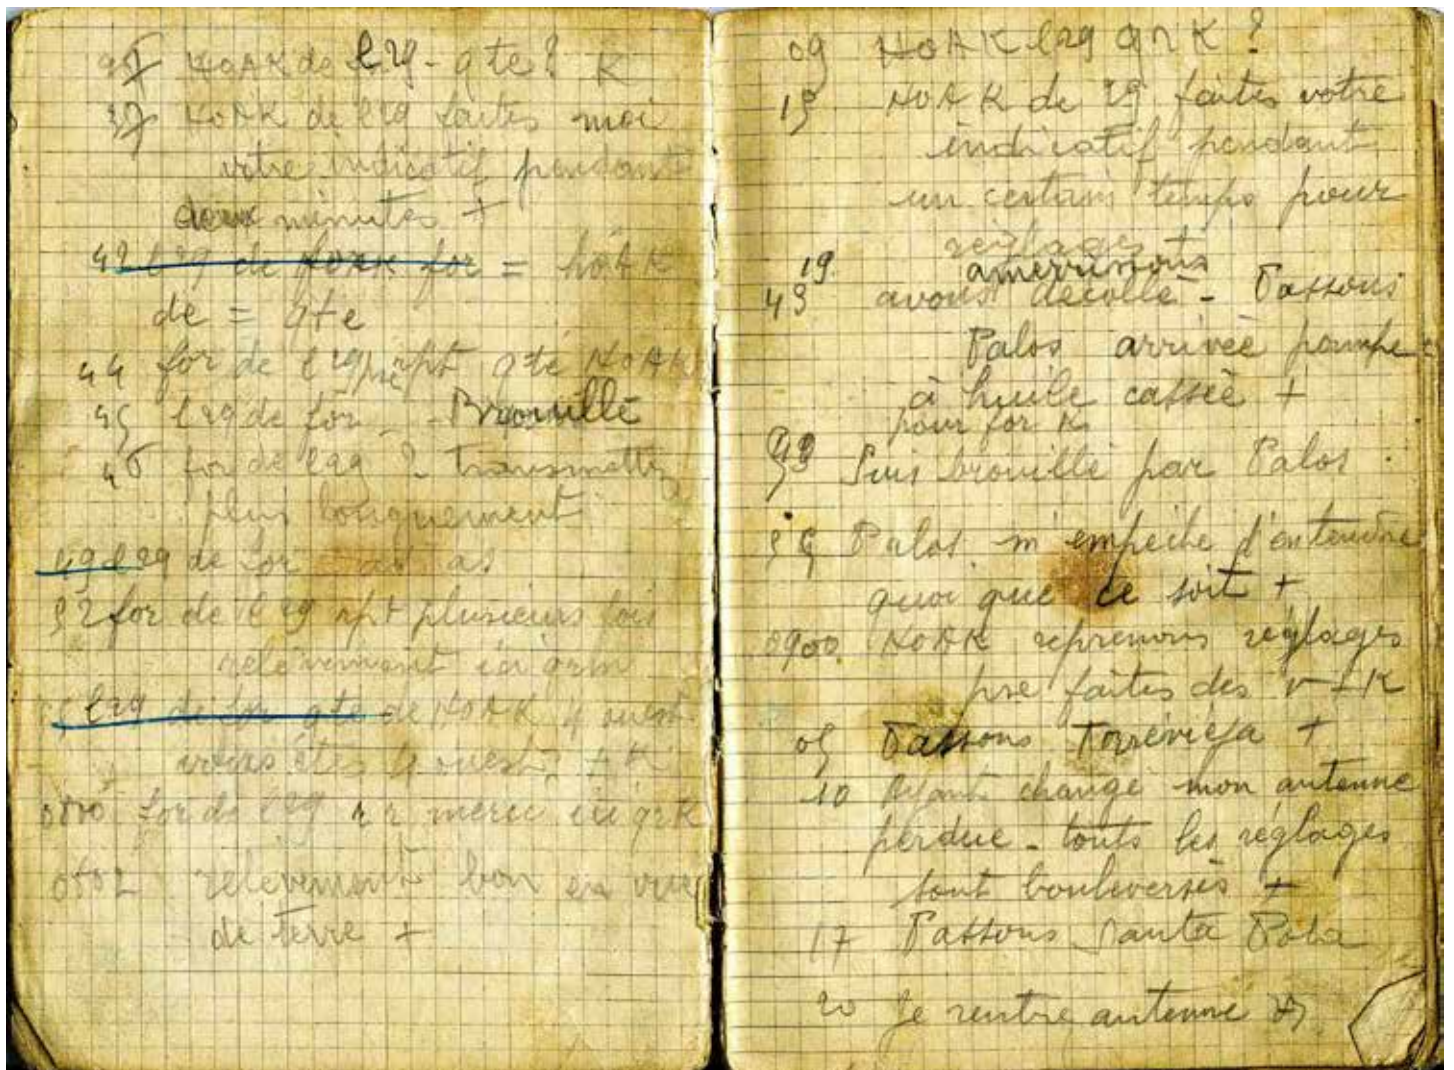 HOAK de lzg - qte? K
37 HOAK de lzg faites moi
votre indicatif pendant
deux minutes +
42 lzg de HOAK for = hoAK
de = qte
44 for de lzg rpt qte HOAK
45 lzg de for - Brouillé
for de lzg ? transmettez
plus longuement
49 lzg de for as
52 for de lzg rpt plusieurs fois
relèvement ici qrm
lzg de for qte de HOAK 4 ouest
vous êtes 4 ouest + K
for de lzg r r merci ici qrk
relèvement bon en vue
de terre +
09 HOAK lzg qrk ?
15 HOAK de zg faites votre
indicatif pendant
un certain temps pour
réglages +
19 amerrissons
45 avons décollé - Passons
Palos arrivée pompe
à huile cassée +
pour for K
Suis brouillé par Palos
55 Palos m'empêche d'entendre
quoi que ce soit +
0900 HOAK reprenons réglages
pse faites des v + K
05 Passons Torrevieja +
10 Ayant changé mon antenne
perdue - touts les réglages
sont bouleversés +
17 Passons Santa Pola
20 Je rentre antenne